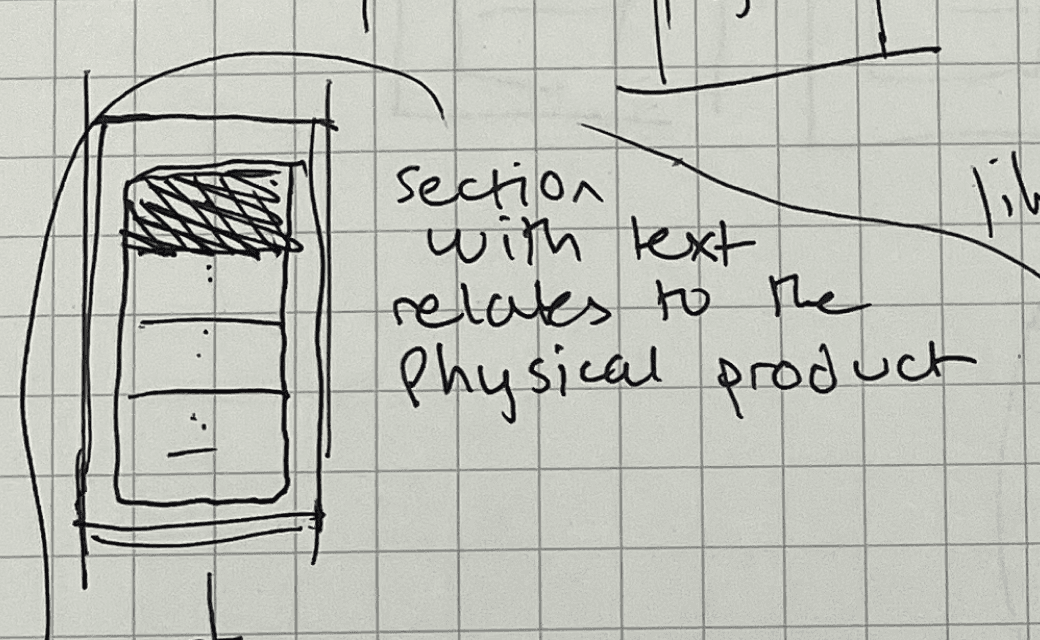 section
with text
relates to the
physical product